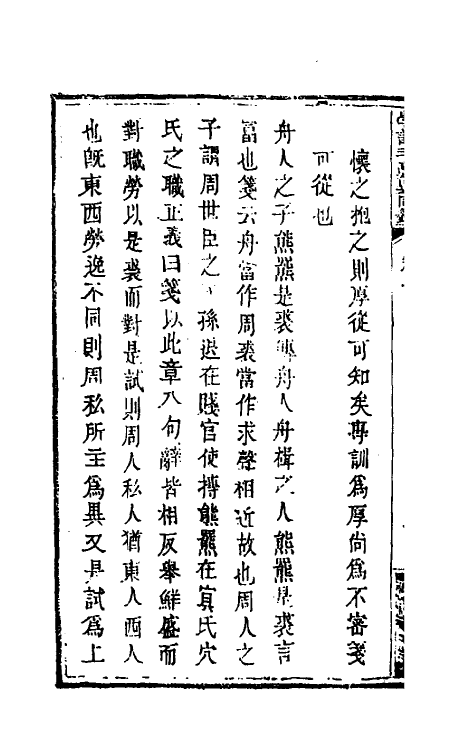 懷之抱之則厚從可知矣專訓爲厚尚爲不審箋
可從也
舟人之子熊羆是裘傳舟人舟楫之人熊羆是裘言
富也箋云舟當作周裘當作求聲相近故也周人之
子謂周世臣之子孫退在賤官使搏熊羆在冥氏穴
氏之職正義曰箋以此章八句辭皆相反舉鮮盛而
對職勞以是裘而對是試則周人私人猶東人西人
也旣東西勞逸不同則周私所主爲異又是試爲上